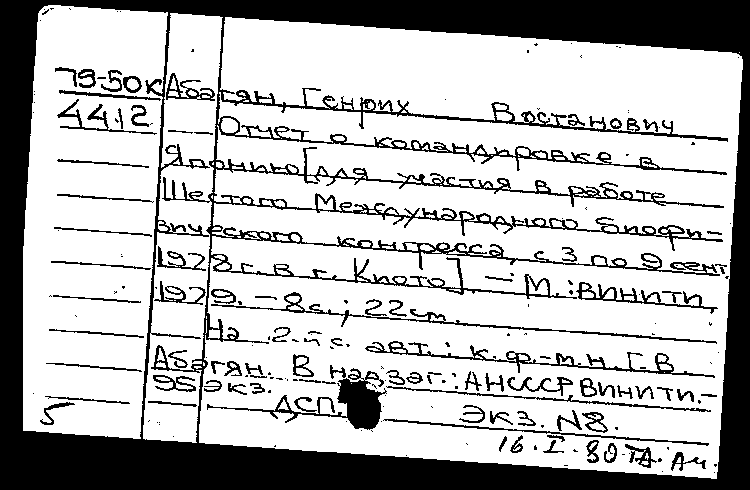 79-50к Абагян, Генрих Востанович
4412 Отчет о командировке в
Японию [для участия в работе
Шестого Международного биофи-
зического конгресса, с 3 по 9 сент.
1978 г. в г. Киото] - М.: ВИНИТИ,
1979. - 8 с.; 22 см.
На 2-й с. авт.: к.ф.-м.н. Г.В.
Абагян. В надзаг.: АН СССР, ВИНИТИ. -
95 экз.
ДСП. экз. N8.
5 16.I.80